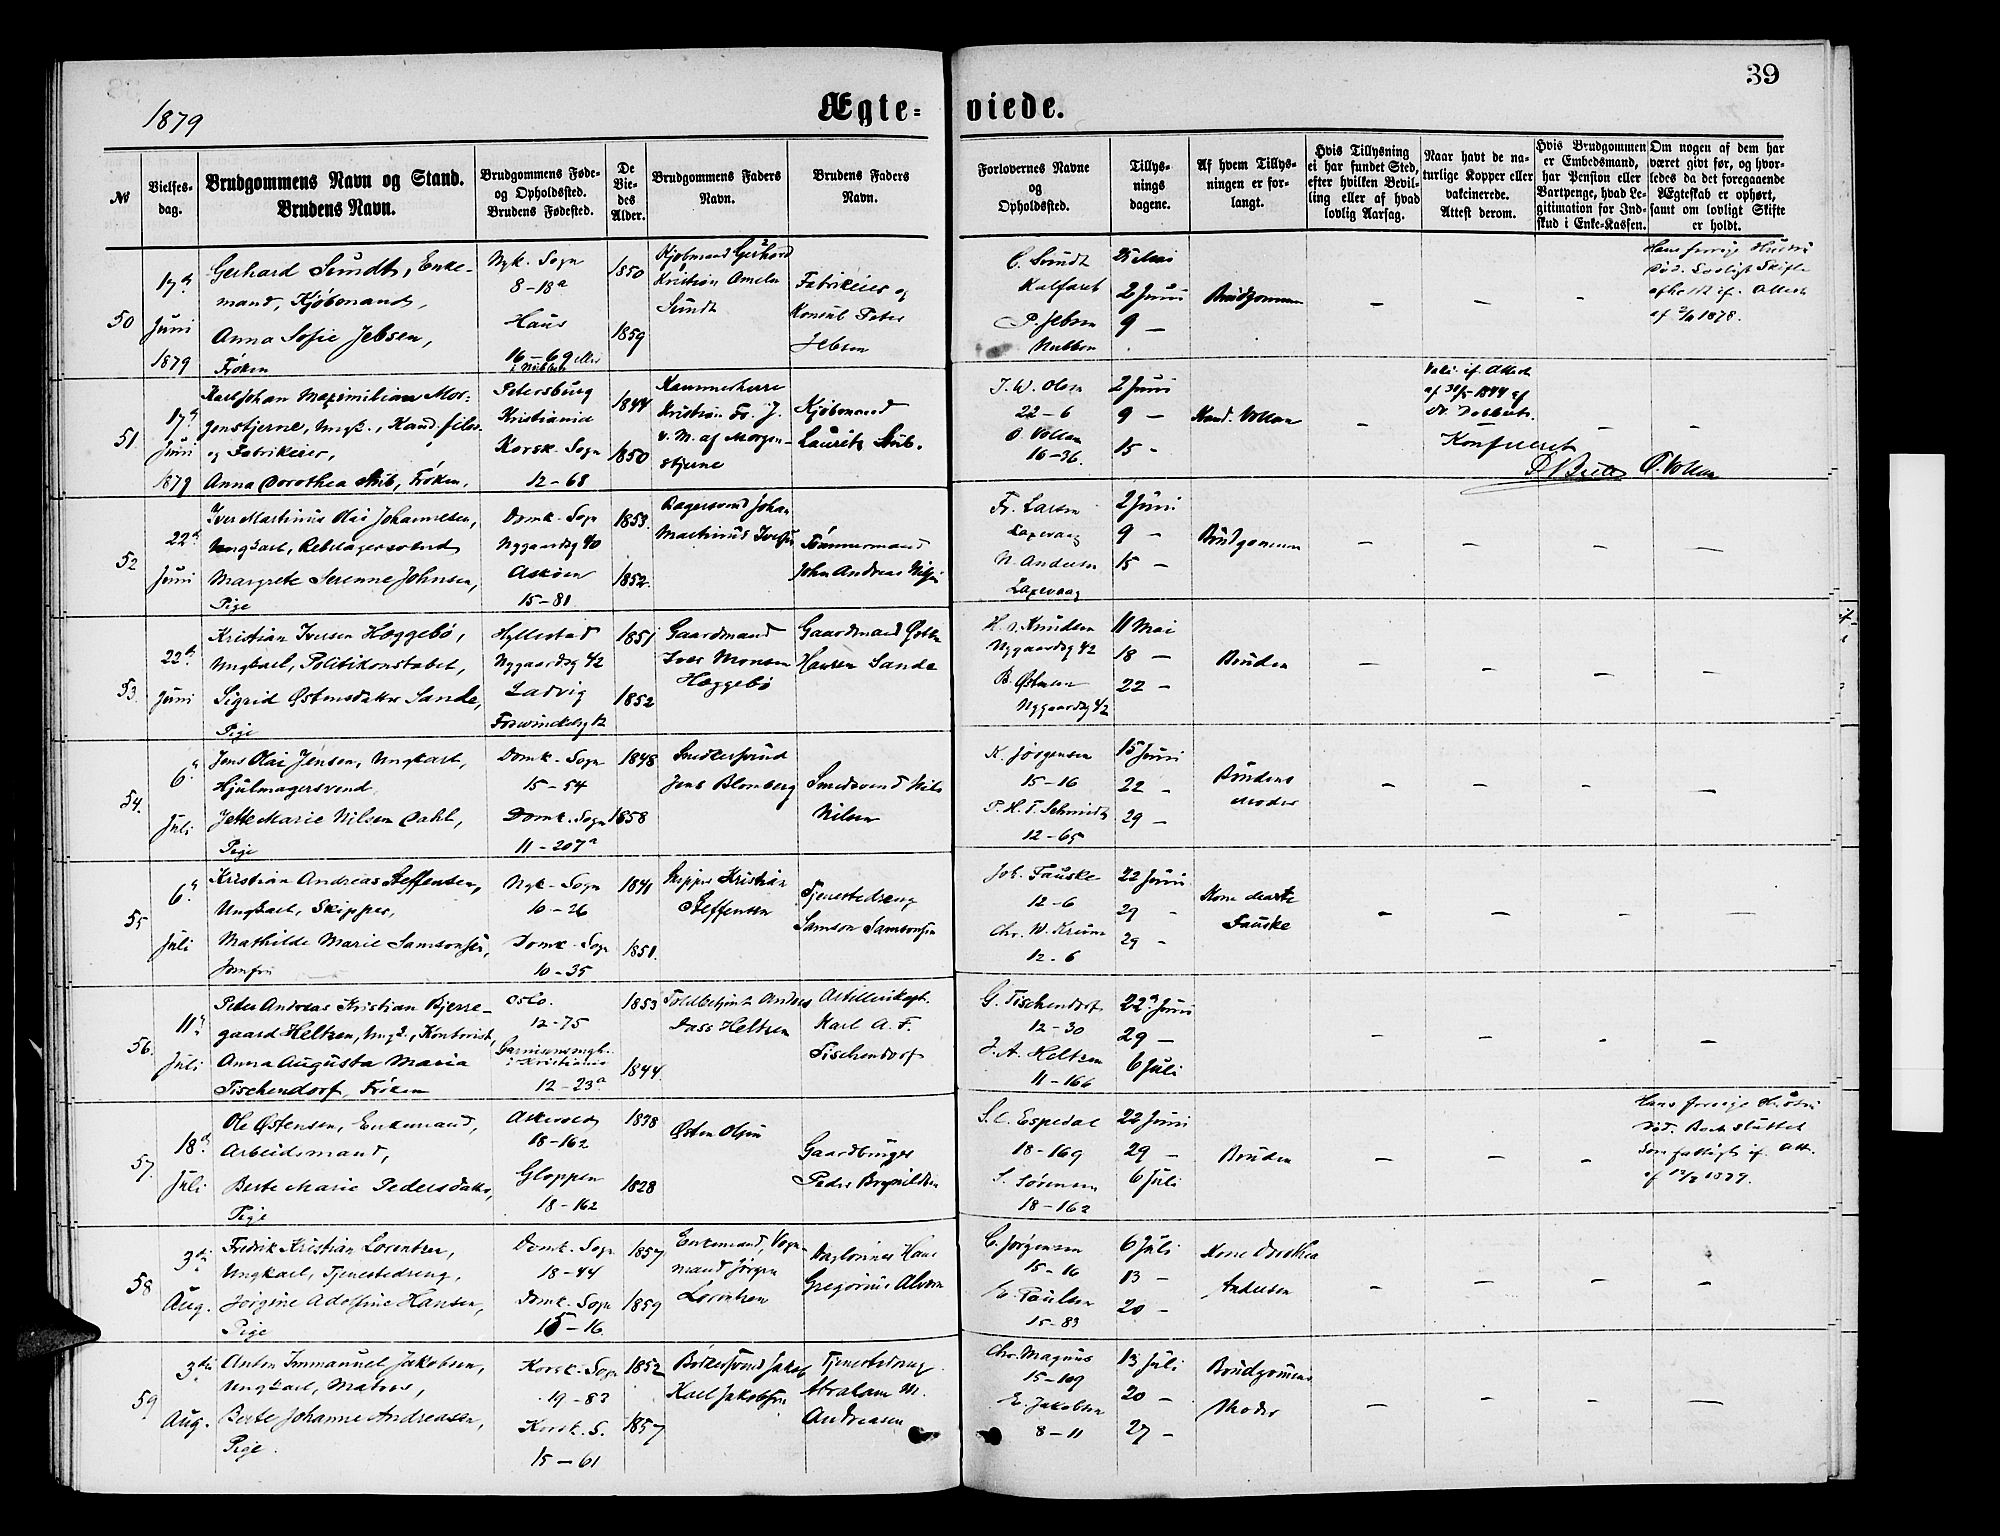 1879
Ægte-
viede.
39
№
Vielses-
dag.
Brudgommens Navn og Stand.
Brudens Navn.
Brudgommens Føde-
og Opholdssted.
Brudens Fødested.
De
Vie-
des
Alder.
Brudgommens Faders
Navn.
Brudens Faders
Navn.
Forlovernes Navne
og
Opholdssted.
Tillys-
nings
dagene.
Af hvem Tillys-
ningen er for-
langt.
Hvis Tillysning
ei har fundet Sted,
efter hvilken Bevil-
ling eller af hvad
lovlig Aarsag.
Naar havt de na-
turlige Kopper eller
vakcinerede.
Attest derom.
Hvis Brudgommen
er Embedsmand,
har Pension eller
Vartpenge, hvad Le-
gitimation for Ind-
skud i Enke-Kassen.
Om nogen af dem har
været givt før, og hvor-
ledes da det foregaaende
Ægteskab er ophørt,
samt om lovligt Skifte
er holdt.
50
17de
Juni
1879
Gerhard Sundt, Enke-
mand, Kjøbmand,
Anna Sofie Jebsen,
Frøken
Nyk. Sogn
8-18a
Haus
16-69 eller
1850
1859
Kjøbmand Gerhard
Kristian Ameln
Sundt
Fabrikeier og
Konsul Peter
Jebsen
C. Sundt
Kalfaret
P. Jebsen
Nubben
25 Mai
2 Juni
9 -
Brudgommen
-
-
-
Hans forrige Hustru
død. Lovligt Skifte
afholdt if. Attest
1878.
51.
17de
Juni
1879
Karl Johan Maximilian Mor-
genstjerne, Ungk., Kand. filos.
og Fabrikeier,
Anna Dorothea Stub, Frøken.
Petersburg
Kristiania
Korsk. Sogn
12-68
1844
1850
Kammerherre
Kristian Fr. J.
v. M. af Morgen-
stjerne
Kjøbmand
Lauritz Stub.
J. W. Olsen
22-6
O. Vollan
16-36.
2 Juni
9 -
15 -
Kand. Vollan
-
Vak. if. Attest
af
Dr. Dobbert.
Konfereret
-
-
O. Vollan
52
22de
Juni
Iver Martinus Olai Johannesen,
Ungkarl, Rebslagersvend
Margrete Serenne Johnsen,
Pige
Domk. Sogn
Nygaardsg 40
Askøen
15-81
1853.
1852.
Bagersvend Johan
Martinus Iversen
Tømmermand
John Andreas Nilsen
Fr. Larsen
Laxevaag
N. Andersen
Laxevaag
2 Juni
9 -
15 -
Brudgommen
-
-
-
-
53.
22de
Juni
Kristian Iversen Hæggebø,
Ungkarl, Politikonstabel,
Sigrid Østensdatter Sande,
Pige
Hyllestad
Nygaardsg 42
Ladvig
Forvindelsg 12
1851
1852
Gaardmand
Iver Monsen
Hæggebø
Gaardmand Østen
Hansen Sande
H. O. Knudsen
Nygaardsg 42
B. Østensen
Nygaardsg 42
11 Mai
18 -
22 -
Bruden
-
-
-
-
54.
6te
Juli
Jens Olai Jensen, Ungkarl,
Hjulmagersvend,
Jette Marie Nilsen Dahl,
Pige
Domk. Sogn
15-54
Domk. Sogn
11-207a
1848
1858
Snedkersvend
Jens Blomberg
Smedsvend Nils
Nilsen
K. Jørgensen
15-16
P. H. T. Schmidt
12-65
15 Juni
22 -
29 -
Brudens
Moder
-
-
-
-
55
6te
Juli
Kristian Andreas Steffensen,
Ungkarl, Skipper,
Mathilde Marie Samsonsen,
Jomfru
Nyk. Sogn
10-26
Domk. Sogn
10-35
1841
1851.
Skipper Kristian
Steffensen
Tjenestedreng
Samson Samsonsen
Joh. Fauske
12-6
Chr. W. Krüner
12-6
22 Juni
29 -
29 -
Kone Marte
Fauske
-
-
-
-
56.
11te
Juli
Peder Andreas Kristian Bjerre-
gaard Heltzen, Ungk., Kontorist,
Anna Augusta Maria
Tischendorf, Frøken
Oslo.
12-75
Garnisonsmgh.
i Kristiania
12-23a
1853
1844.
Toldbetjent Anders
Dass Heltzen
Artillerikapt.
Karl A. F.
Tischendorf
G. Tischendorf
12-30
J. A. Heltzen
11-166
22de Juni
29 -
6 Juli
-
-
-
-
57.
18de
Juli
Ole Østensen, Enkemand,
Arbeidsmand,
Berte Marie Pedersdatter,
Pige
Askevold
18-162
Gloppen
18-162
1838
1828
Østen Olsen
Gaardbruger
Peder Brynildsen
S. C. Espedal
18-169
S. Sørensen
18-162
22 Juni
29 -
6 Juli
Bruden
-
-
-
Hans forrige Hustru
død. Boet sluttet
som fattigt if. Att.
1879.
58
3die
Aug.
Fredrik Kristian Lorentzen,
Ungkarl, Tjenestedreng,
Jørgine Adolfine Hansen,
Pige
Domk. Sogn
18-44
Domk. Sogn
15-16.
1857
1859
Enkemand, Vogn-
mand Jørgen
Lorentzen
Daglønner Hans
Gregorius Alvern
C. Jørgensen
15-16
Paulsen
15-83
6 Juli
13 -
20 -
Kone Dorthea
Andersen
-
-
-
-
59
3die
Aug.
Anton Immanuel Jakobsen,
Ungkarl, Matros,
Berte Johanne Andreasen,
Pige.
Korsk. Sogn
19-83
Korsk. S.
15-61
1852
1857
Bødkersvend Jakob
Karl Jakobsen
Tjenestedreng
Abraham M.
Andreasen
Chr. Magnus
15-109
E. Jakobsen
8-11
13 Juli
20 -
27 -
Brudgommens
Moder
-
-
-
-